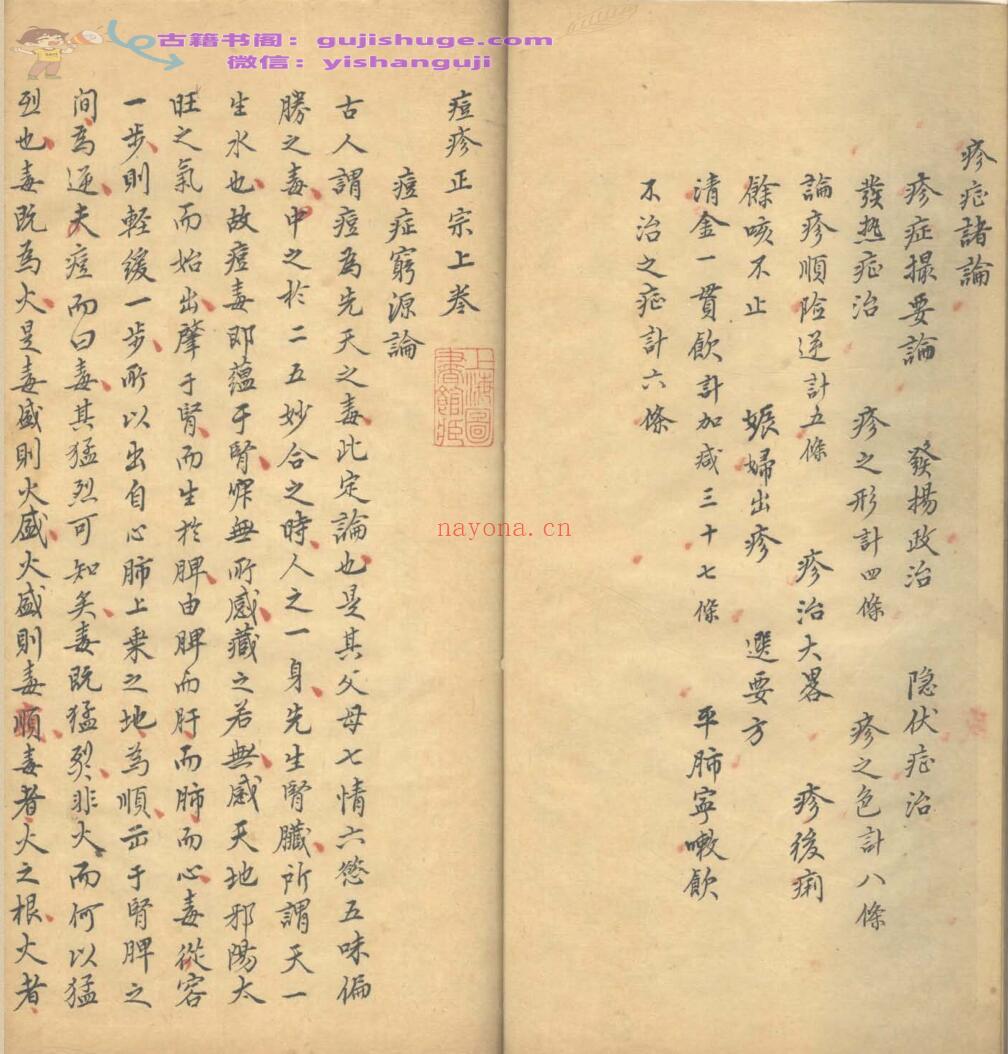 古籍书阁：gujishuge.com
微信：yishanguji
疹症諸論
疹症撮要論　發揚政治　隐伏症治
發热症治　疹之形計四條　疹之色計八條
論疹順险逆計五條　疹治大畧　疹後痢
餘咳不止　娠婦出疹　選要方
清金一貫飲計加減三十七條　平肺寧嗽飲
不治之症計六條
痘疹正宗上卷
上海圖書館藏
痘症窮源論
古人謂痘為先天之毒此定論也是其父母七情六慾五味偏
勝之毒中之於二五妙合之時人之一身先生腎臟所謂天一
生水也故痘毒即蕴于腎窂無所感藏之若無感天地邪陽太
旺之氣而始出肇于腎而生於脾由脾而肝而肺而心毒從容
一步則軽缓一步所以出自心肺上乘之地為順出于腎脾之
間為逆夫痘而曰毒其猛烈可知矣毒既猛烈非火而何以猛
烈也毒既為火是毒盛則火盛火盛則毒順毒者火之根火者
nayona.cn